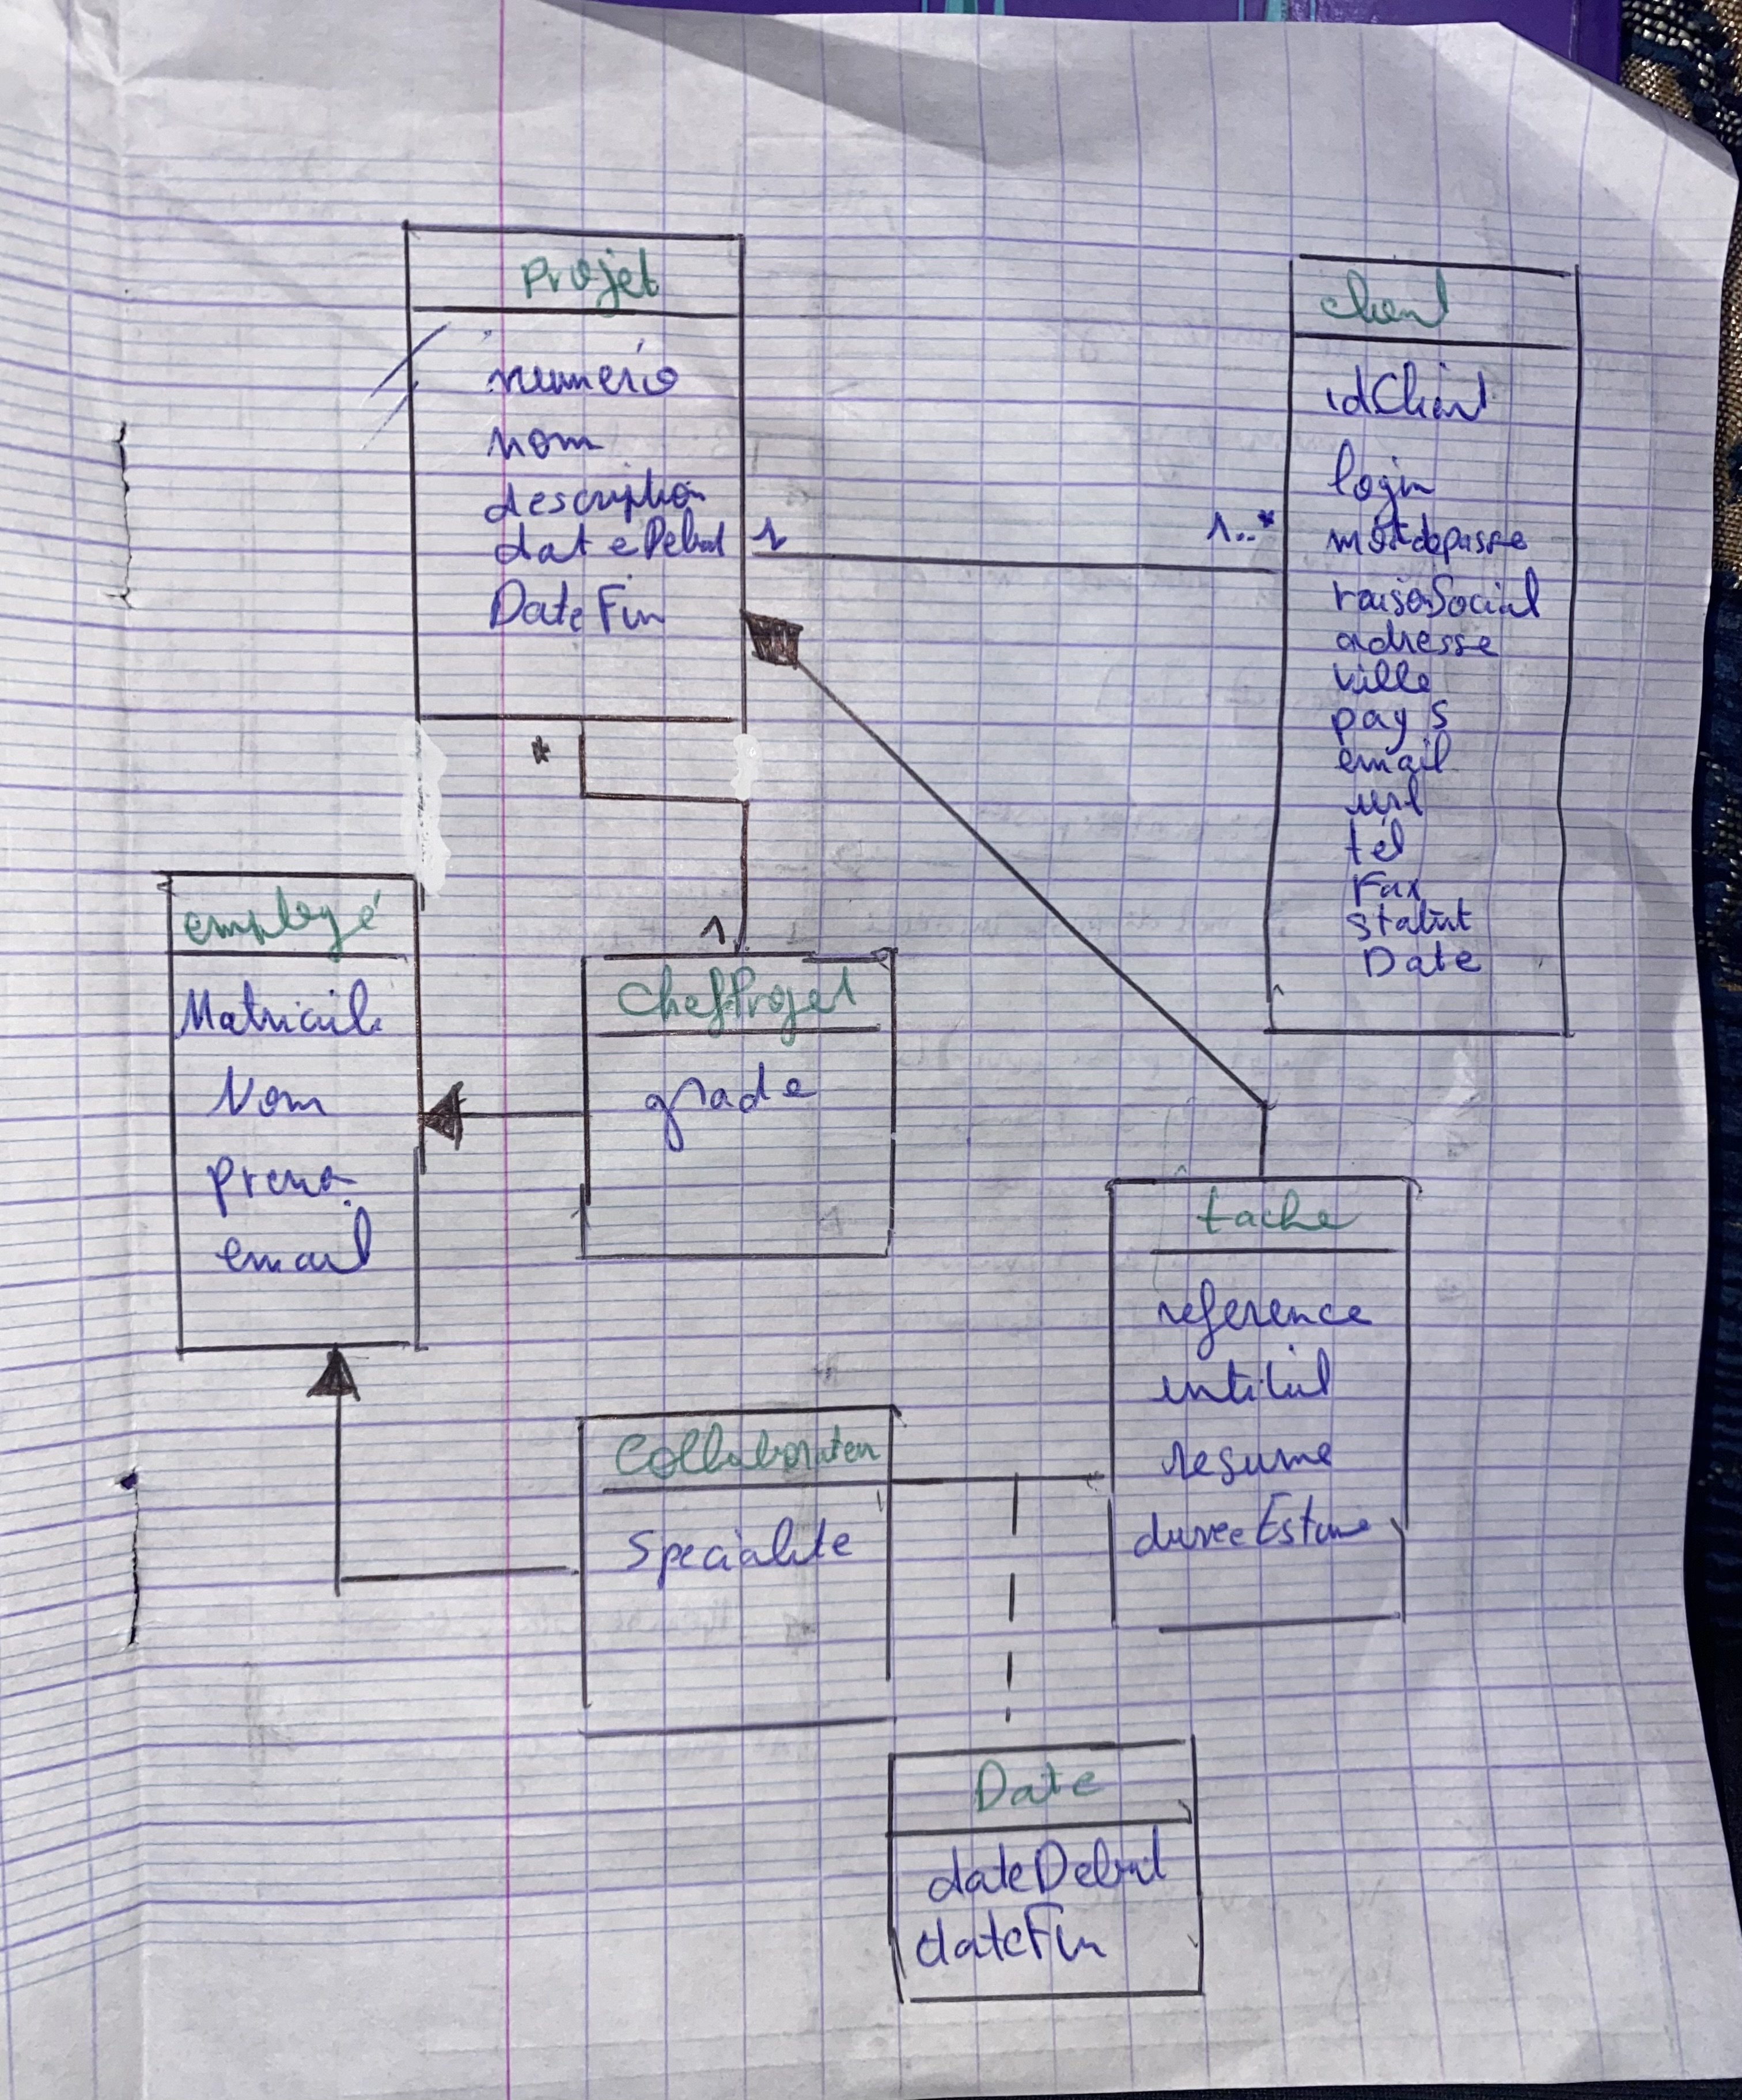 Projet
numero
nom
description
dateDebut
DateFin
1
1..*
client
idClient
login
motdepasse
raisonSocial
adresse
ville
pays
email
url
tél
Fax
statut
Date
*
1
employé
Matricule
Nom
preno.
email
ChefProjet
grade
tache
reference
intitul
resume
dureeEstime
Collaborateur
Specialite
Date
dateDebut
dateFin